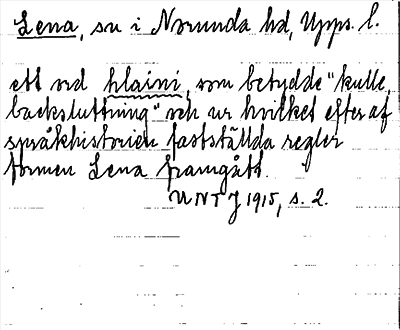 Lena, sn i Norunda hd, Upps. l.
ett ord hlaini, som betydde "kulle,
backsluttning" och ur hvilket efter af
språkhistorien fastställda regler
formen Lena framgått.
UNT J 1915, s. 2.